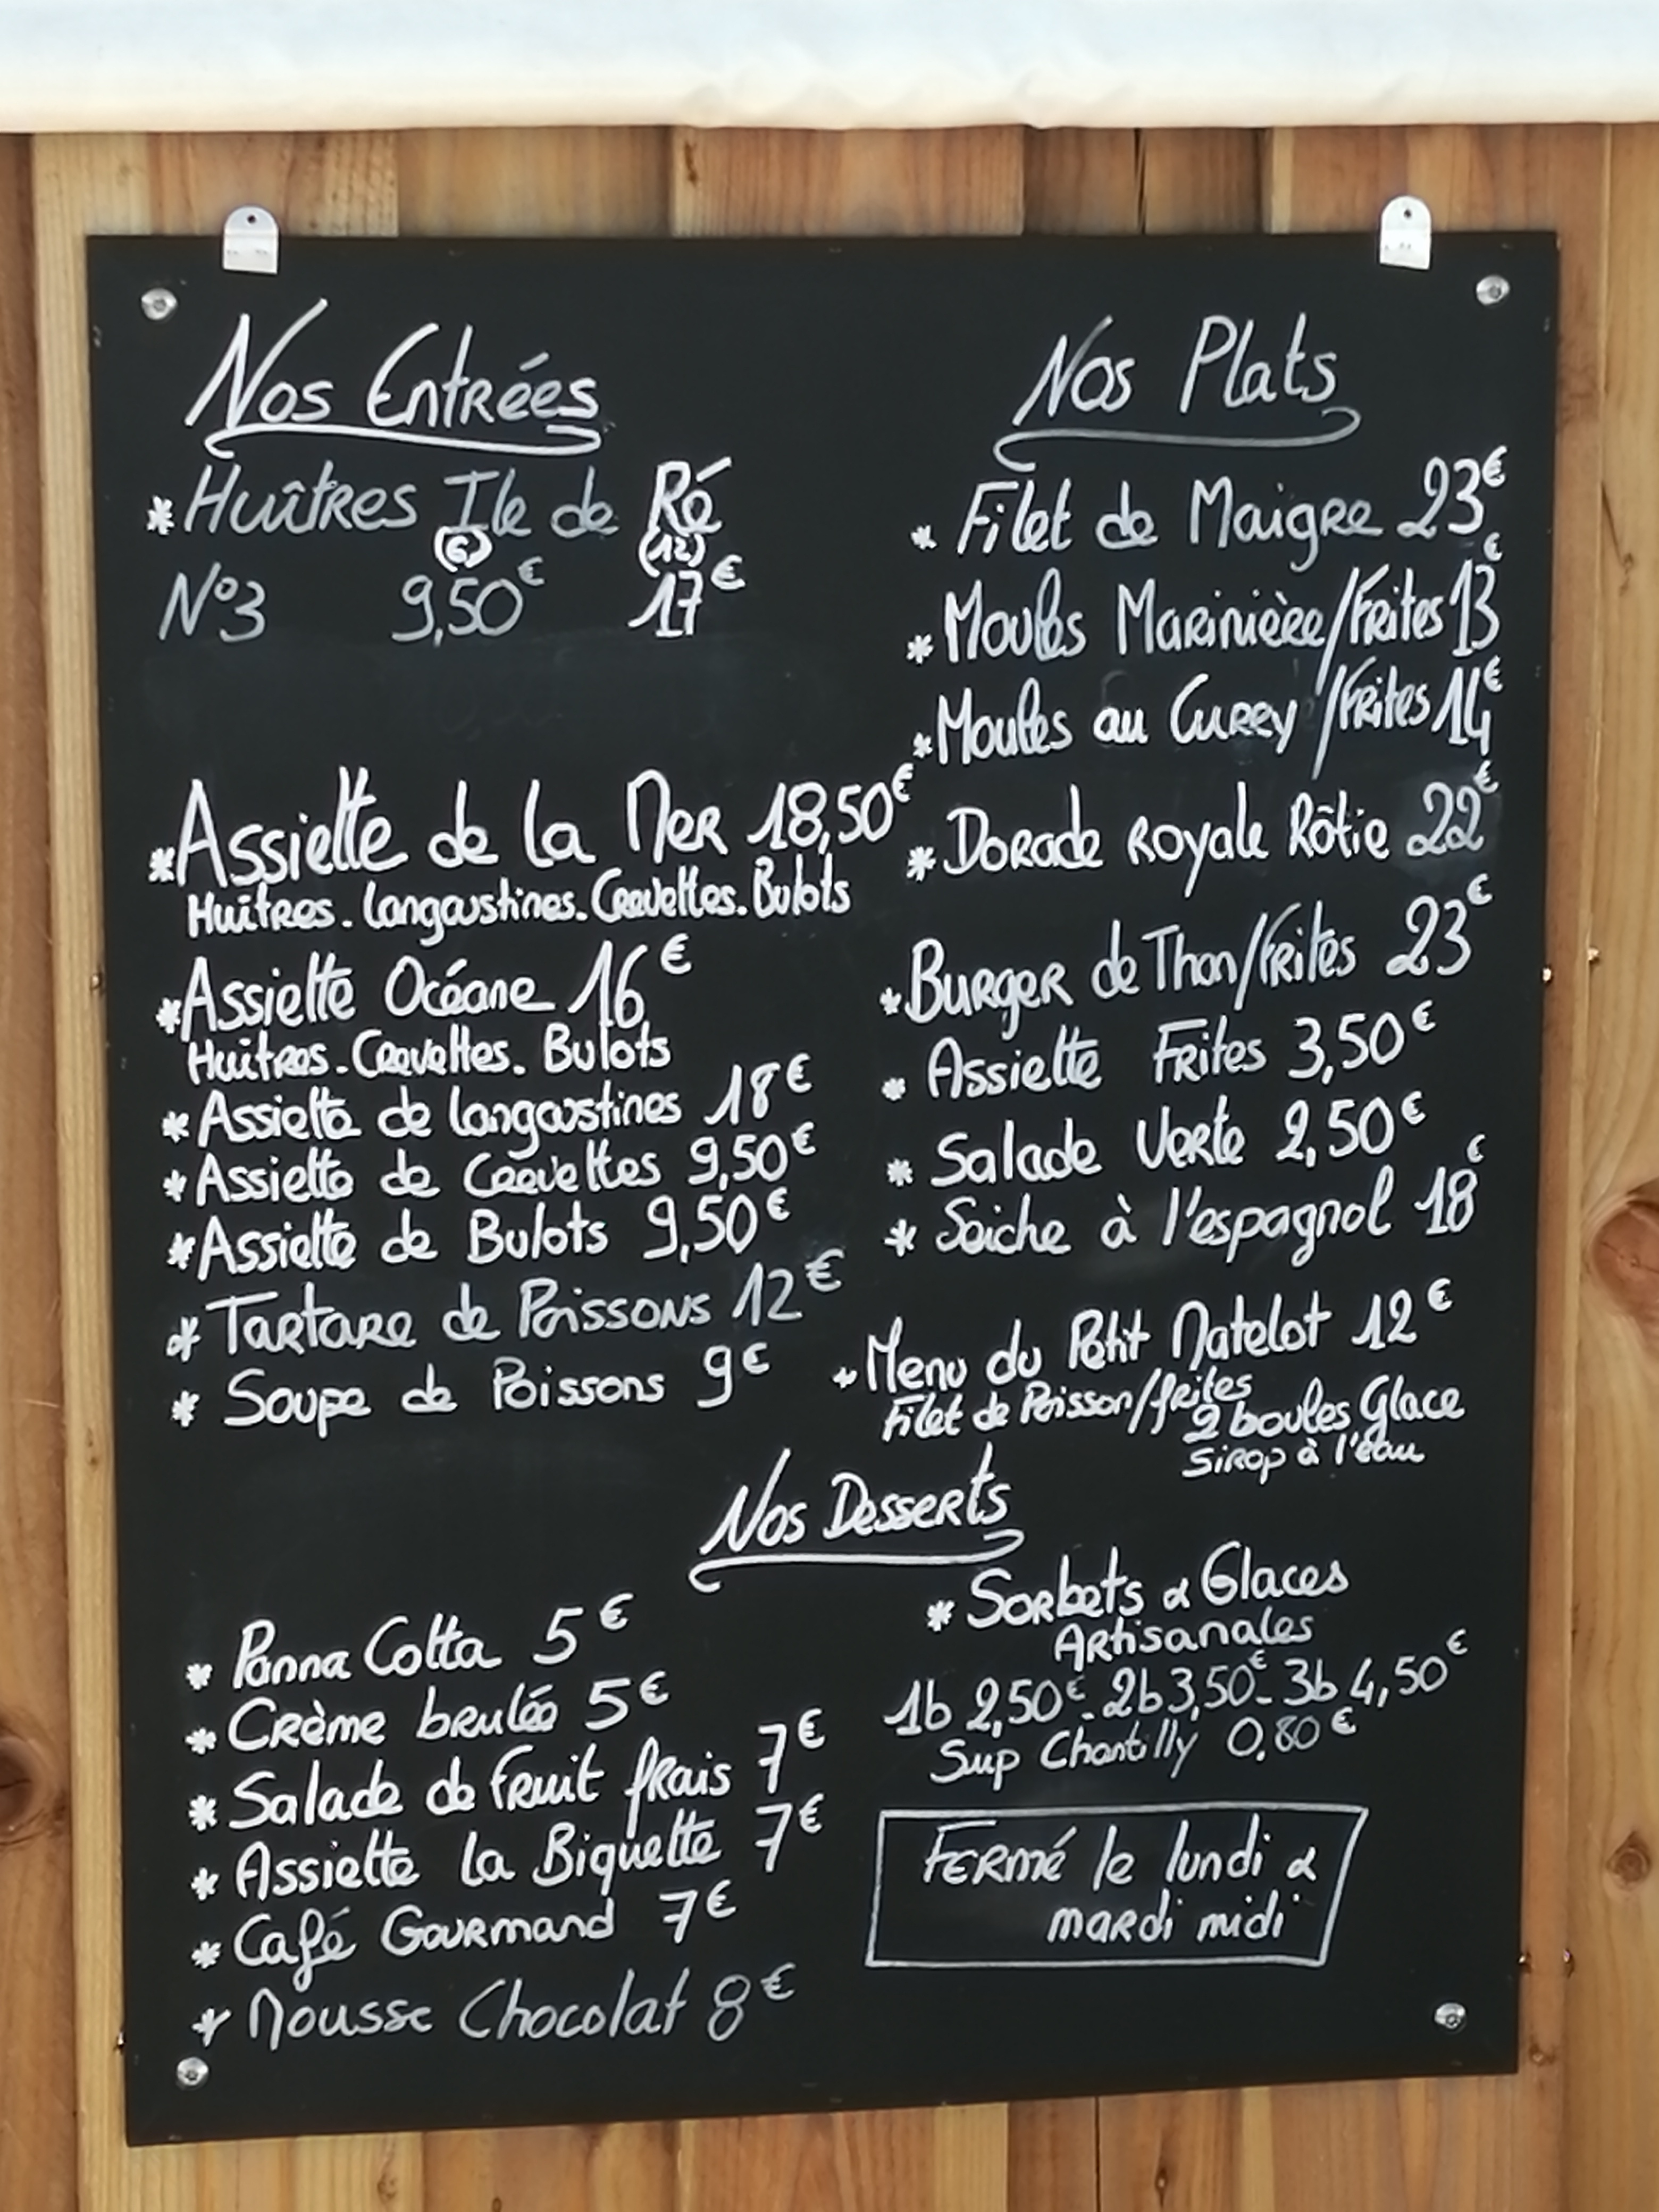 Nos Entrées
* Huîtres Ile de Ré
(6) (12)
N°3 9,50€ 17€
* Assiette de la Mer 18,50€
Huîtres. Langoustines. Crevettes. Bulots
* Assiette Océane 16€
Huîtres. Crevettes. Bulots
* Assiette de Langoustines 18€
* Assiette de Crevettes 9,50€
* Assiette de Bulots 9,50€
* Tartare de Poissons 12€
* Soupe de Poissons 9€
Nos Plats
* Filet de Maigre 23€
* Moules Marinière/Frites 13€
* Moules au Curry /Frites 14€
* Dorade Royale Rôtie 22€
* Burger de Thon/Frites 23€
* Assiette Frites 3,50€
* Salade Verte 2,50€
* Seiche à l'espagnol 18€
* Menu du Petit Matelot 12€
Filet de Poisson/frites
2 boules Glace
Sirop à l'eau
Nos Desserts
* Panna Cotta 5€
* Crème brulée 5€
* Salade de Fruit frais 7€
* Assiette la Biquette 7€
* Café Gourmand 7€
* Mousse Chocolat 8€
* Sorbets & Glaces
Artisanales
1b 2,50€ - 2b 3,50€ - 3b 4,50€
Sup Chantilly 0.80€
Fermé le lundi &
mardi midi